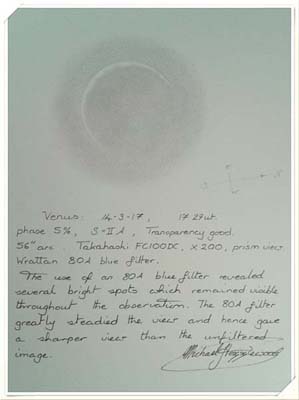 Venus: 14-3-17, 17.29ut.
phase 5%, S-IIA, Transparency good.
56" arc. Takahashi FC100DC, x200, prism view
Wrattan 80A blue filter.
The use of an 80A blue filter revealed
several bright spots which remained visible
throughout the observation. The 80A filter
greatly steadied the view and hence gave
a sharper view than the unfiltered
image.